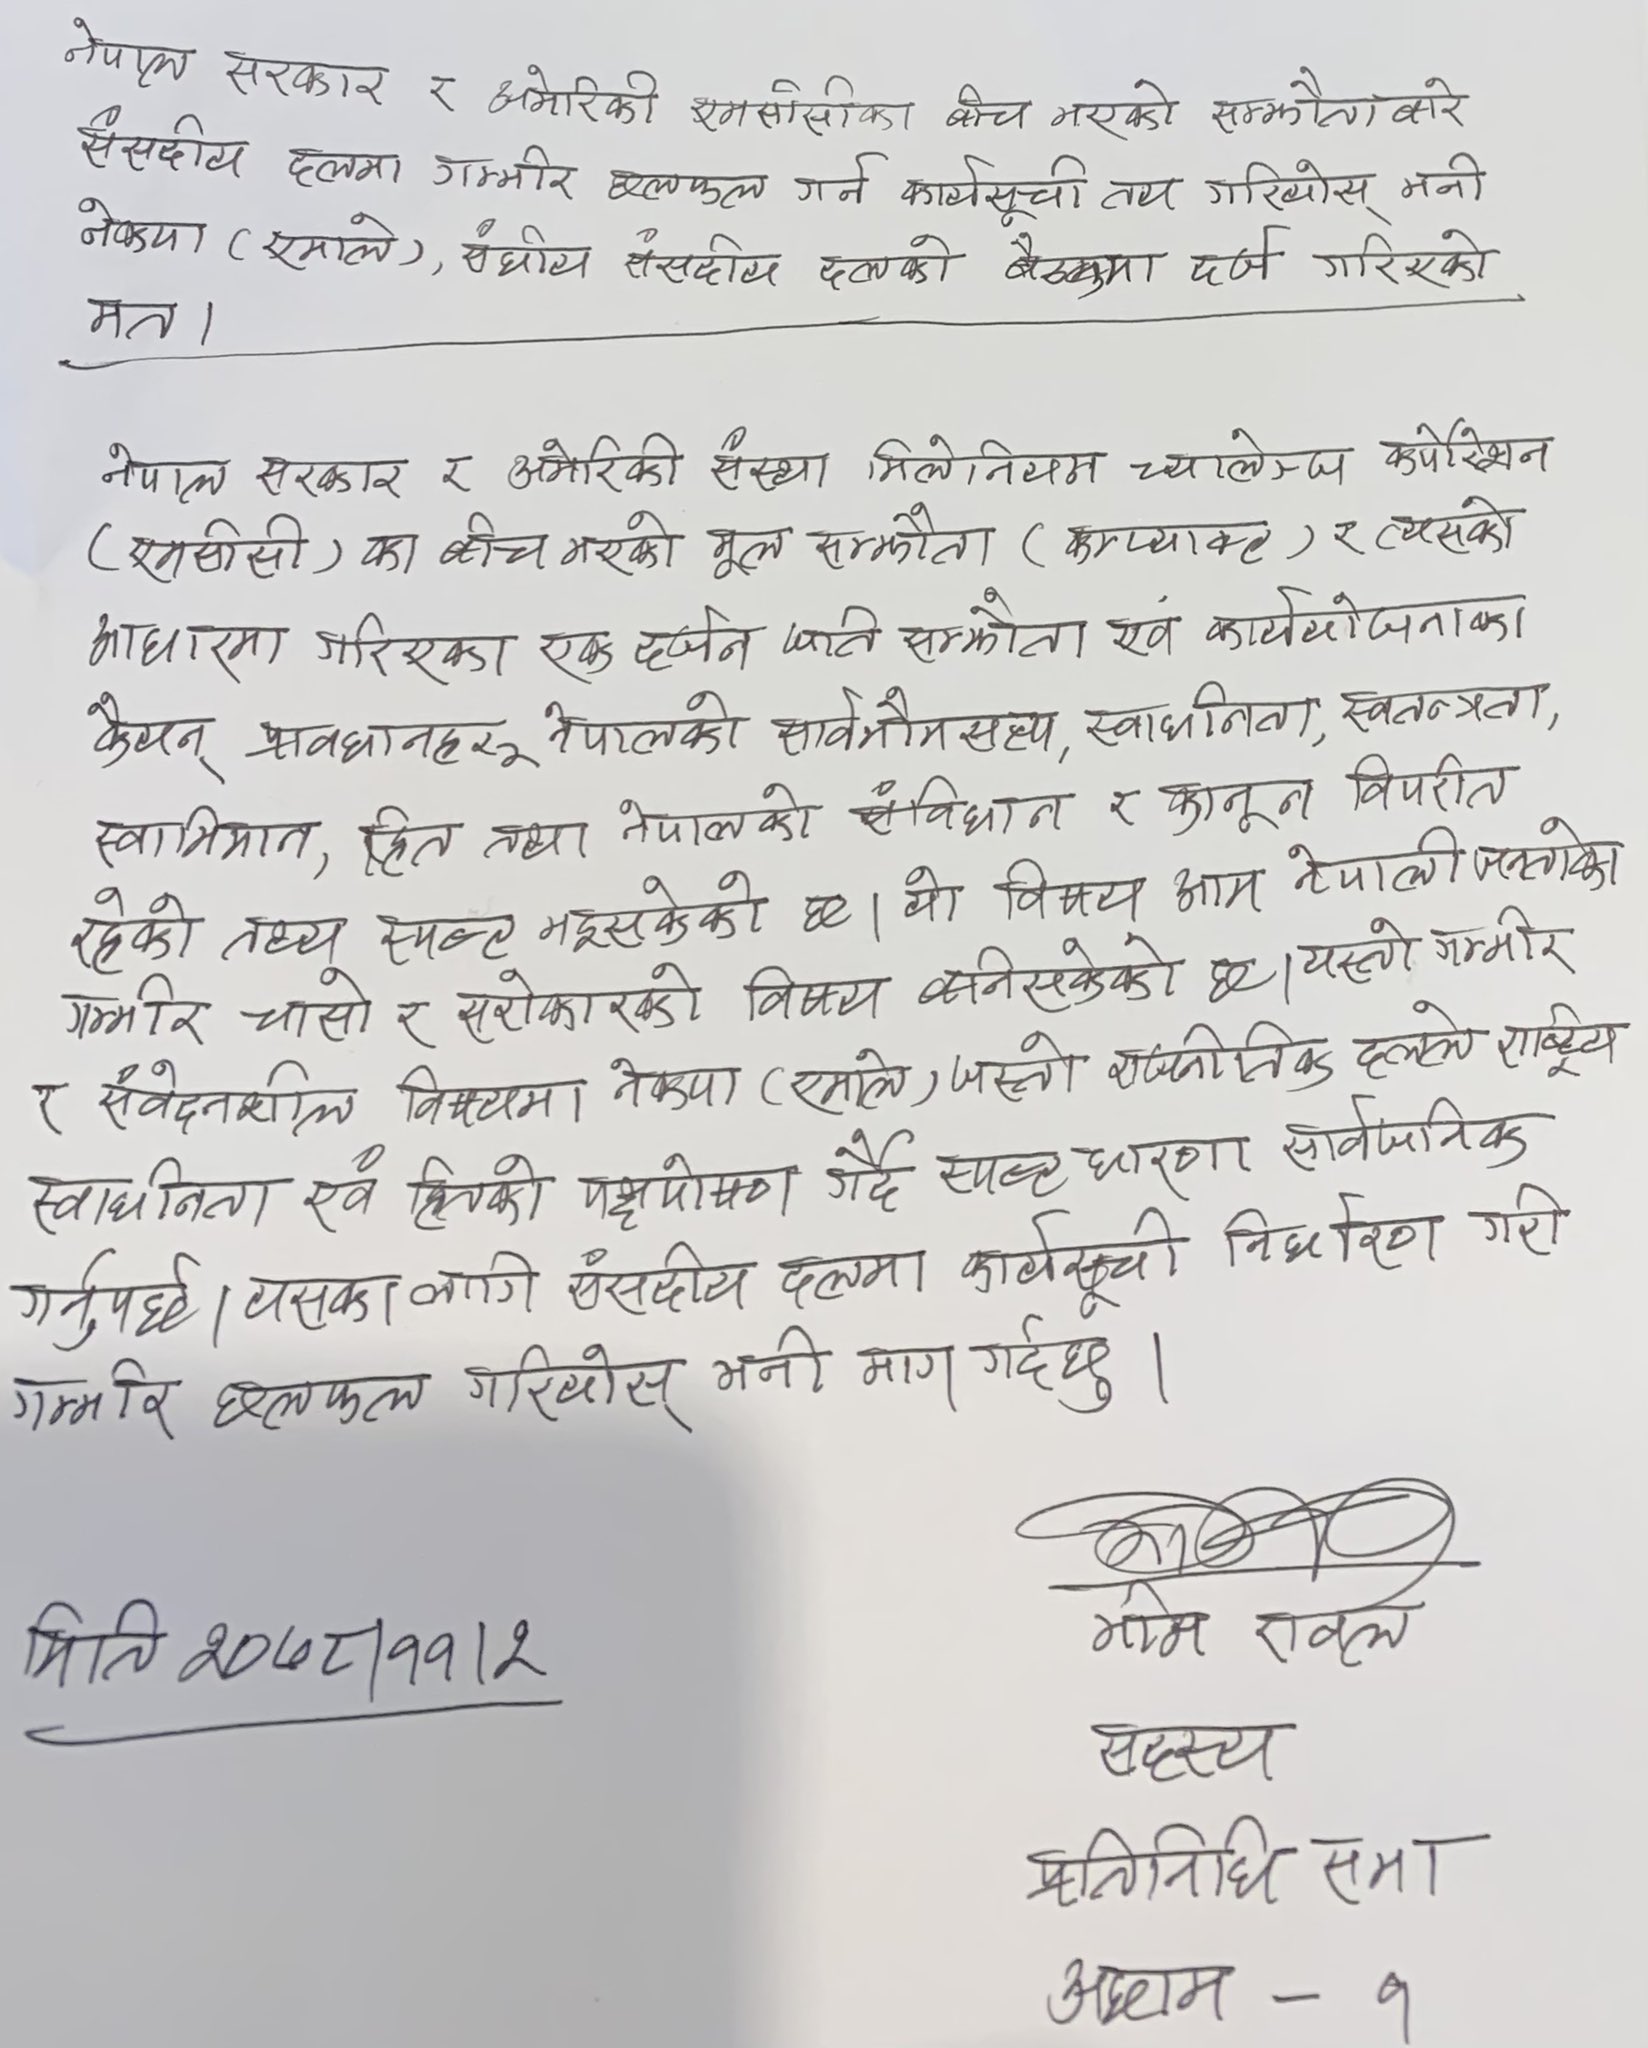 नेपाल सरकार र अमेरिकी एमसीसीका बीच भएको सम्झौता बारे
संसदीय दलमा गम्भीर छलफल गर्न कार्यसूची तय गरियोस् भनी
नेकपा (एमाले), संघीय संसदीय दलको बैठकमा दर्ज गरिएको
मत।
नेपाल सरकार र अमेरिकी संस्था मिलेनियम च्यालेन्ज कर्पोरेशन
(एमसीसी) का बीच भएको मूल सम्झौता (कम्प्याक्ट) र त्यसको
आधारमा गरिएका एक दर्जन जति सम्झौता एवं कार्ययोजनाका
कैयन् प्रावधानहरू नेपालको सार्वभौमसत्ता, स्वाधीनता, स्वतन्त्रता,
स्वाभिमान, हित तथा नेपालको संविधान र कानून विपरीत
रहेको तथ्य स्पष्ट भइसकेको छ। यो विषय आम नेपाली जनताका
गम्भीर चासो र सरोकारको विषय बनिसकेको छ। यस्तो गम्भीर
र संवेदनशील विषयमा नेकपा (एमाले) जस्तो राजनीतिक दलले राष्ट्रिय
स्वाधीनता एवं हितको पक्षपोषण गर्दै स्पष्ट धारणा सार्वजनिक
गर्नुपर्छ। यसका लागि संसदीय दलमा कार्यसूची निर्धारण गरी
गम्भीर छलफल गरियोस् भनी माग गर्दछु।
भीम रावल
मिति २०७८।११।२
सदस्य
प्रतिनिधि सभा
अछाम - १